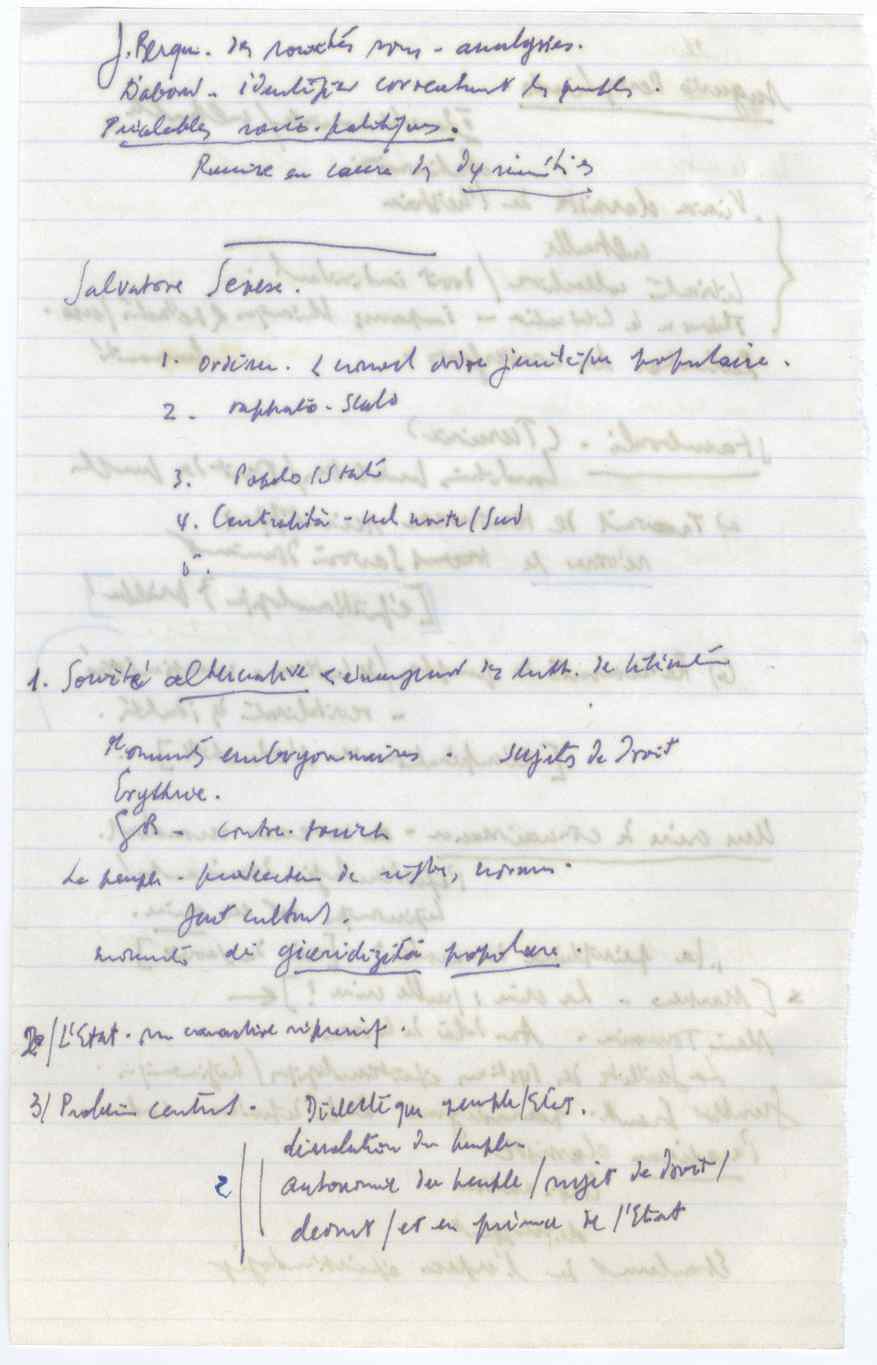 J. Berque. des sociétés sous-analysées.
D'abord - identifier correctement les peuples.
Préalables socio-politiques.
Remise en cause des
Salvatore Senese.
1. ordinem. < nouvel ordre juridique populaire.
2. rapporto - Stato
3. Popolo/Stato
4. Centralità - nel norte/Sud
5.
1. Société alternative < émergeant des lutt. de libération
Moments embryonnaires. sujets de Droit
Erythrée.
GB - contre-
Le peuple - producteur de règles, normes.
fait culturel.
momento di giuridizità popolare.
2/ L'Etat - son caractère répressif.
3/ Problème central. Dialectique peuple/Etat.
dissolution du peuple
2 autonomie du peuple / sujet de droit /
devant / et en présence de l'Etat